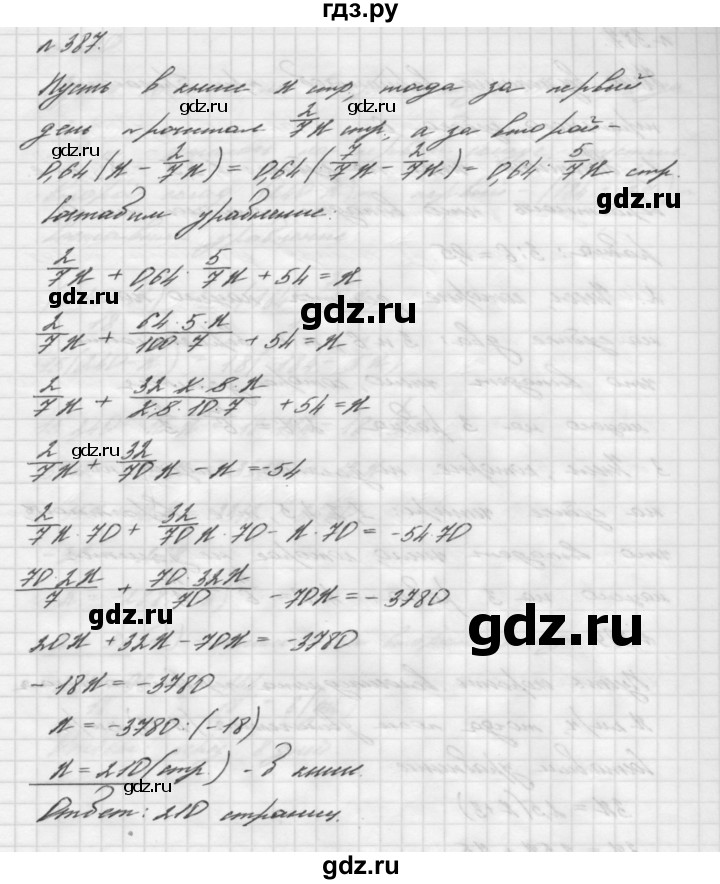 гдз.ру
n 387.
Пусть в книге x стр, тогда за первый
gdz.ru gdz.ru
день прочитал 2/7 x стр, а за второй -
0,64(x - 2/7 x) = 0,64(7/7 x - 2/7 x) = 0,64 · 5/7 x стр.
gdz.ru
Составим уравнение:
2/7 x + 0,64 · 5/7 x + 54 = x
gdz.ru gdz.ru
2/7 x + 64·5·x/100·7 + 54 = x
2/7 x + 32·2·5·x/2·5·10·7 + 54 = x
gdz.ru
2/7 x + 32/70 x - x = -54
2/7 x · 70 + 32/70 x · 70 - x · 70 = -54·70
70·2x/7 + 70·32x/70 - 70x = -3780
gdz.ru gdz.ru
20x + 32x - 70x = -3780
-18x = -3780
x = -3780:(-18)
x = 210 (стр) - в книге.
gdz.ru gdz.ru
Ответ: 210 страниц.
gdz.ru